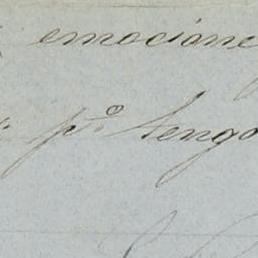 emocióne
pº tengo